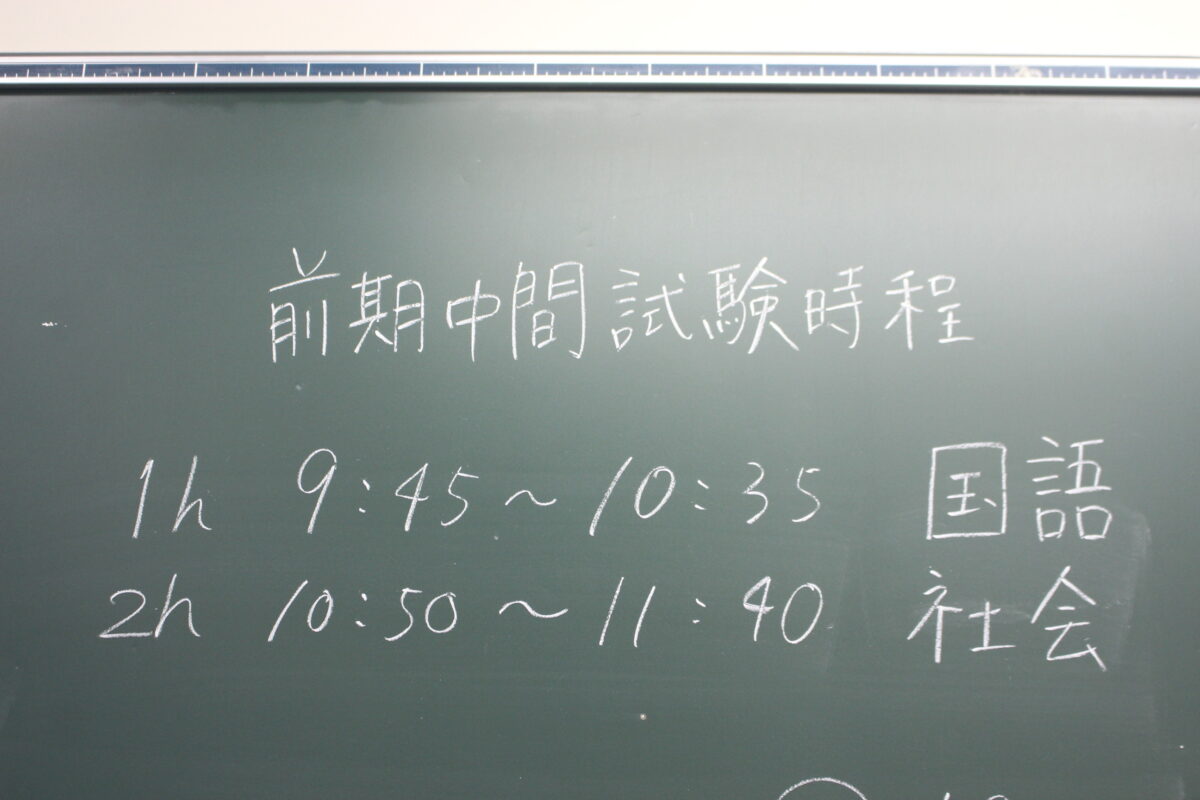 前期中間試験時程
1h 9:45～10:35 国語
2h 10:50～11:40 社会